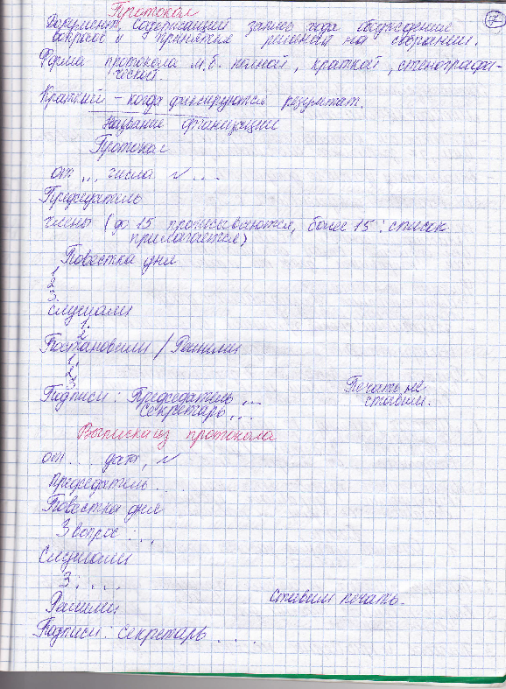 Протокол
7
Документ, содержащий запись хода обсуждения
вопросов и принятия решений на собрании.
Форма протокола м.б. полной, краткой, стенографи-
ческий.
Краткий - когда фиксируются результат.
Название организации
Протокол
от ... числа № ...
Председатель
члены (до 15 прописываются, более 15: список
прилагается)
Повестка дня
1
2
3.
слушали
1.
2.
Постановили / Решили
1.
2.
3
Подписи: Председатель ...
секретарь ...
Печать не
ставим.
Выписка из протокола
от ... дата, №
Председатель ...
Повестка дня
3 вопрос ...
Слушали
3. ...
Решили
Ставим печать.
Подписи: секретарь ...